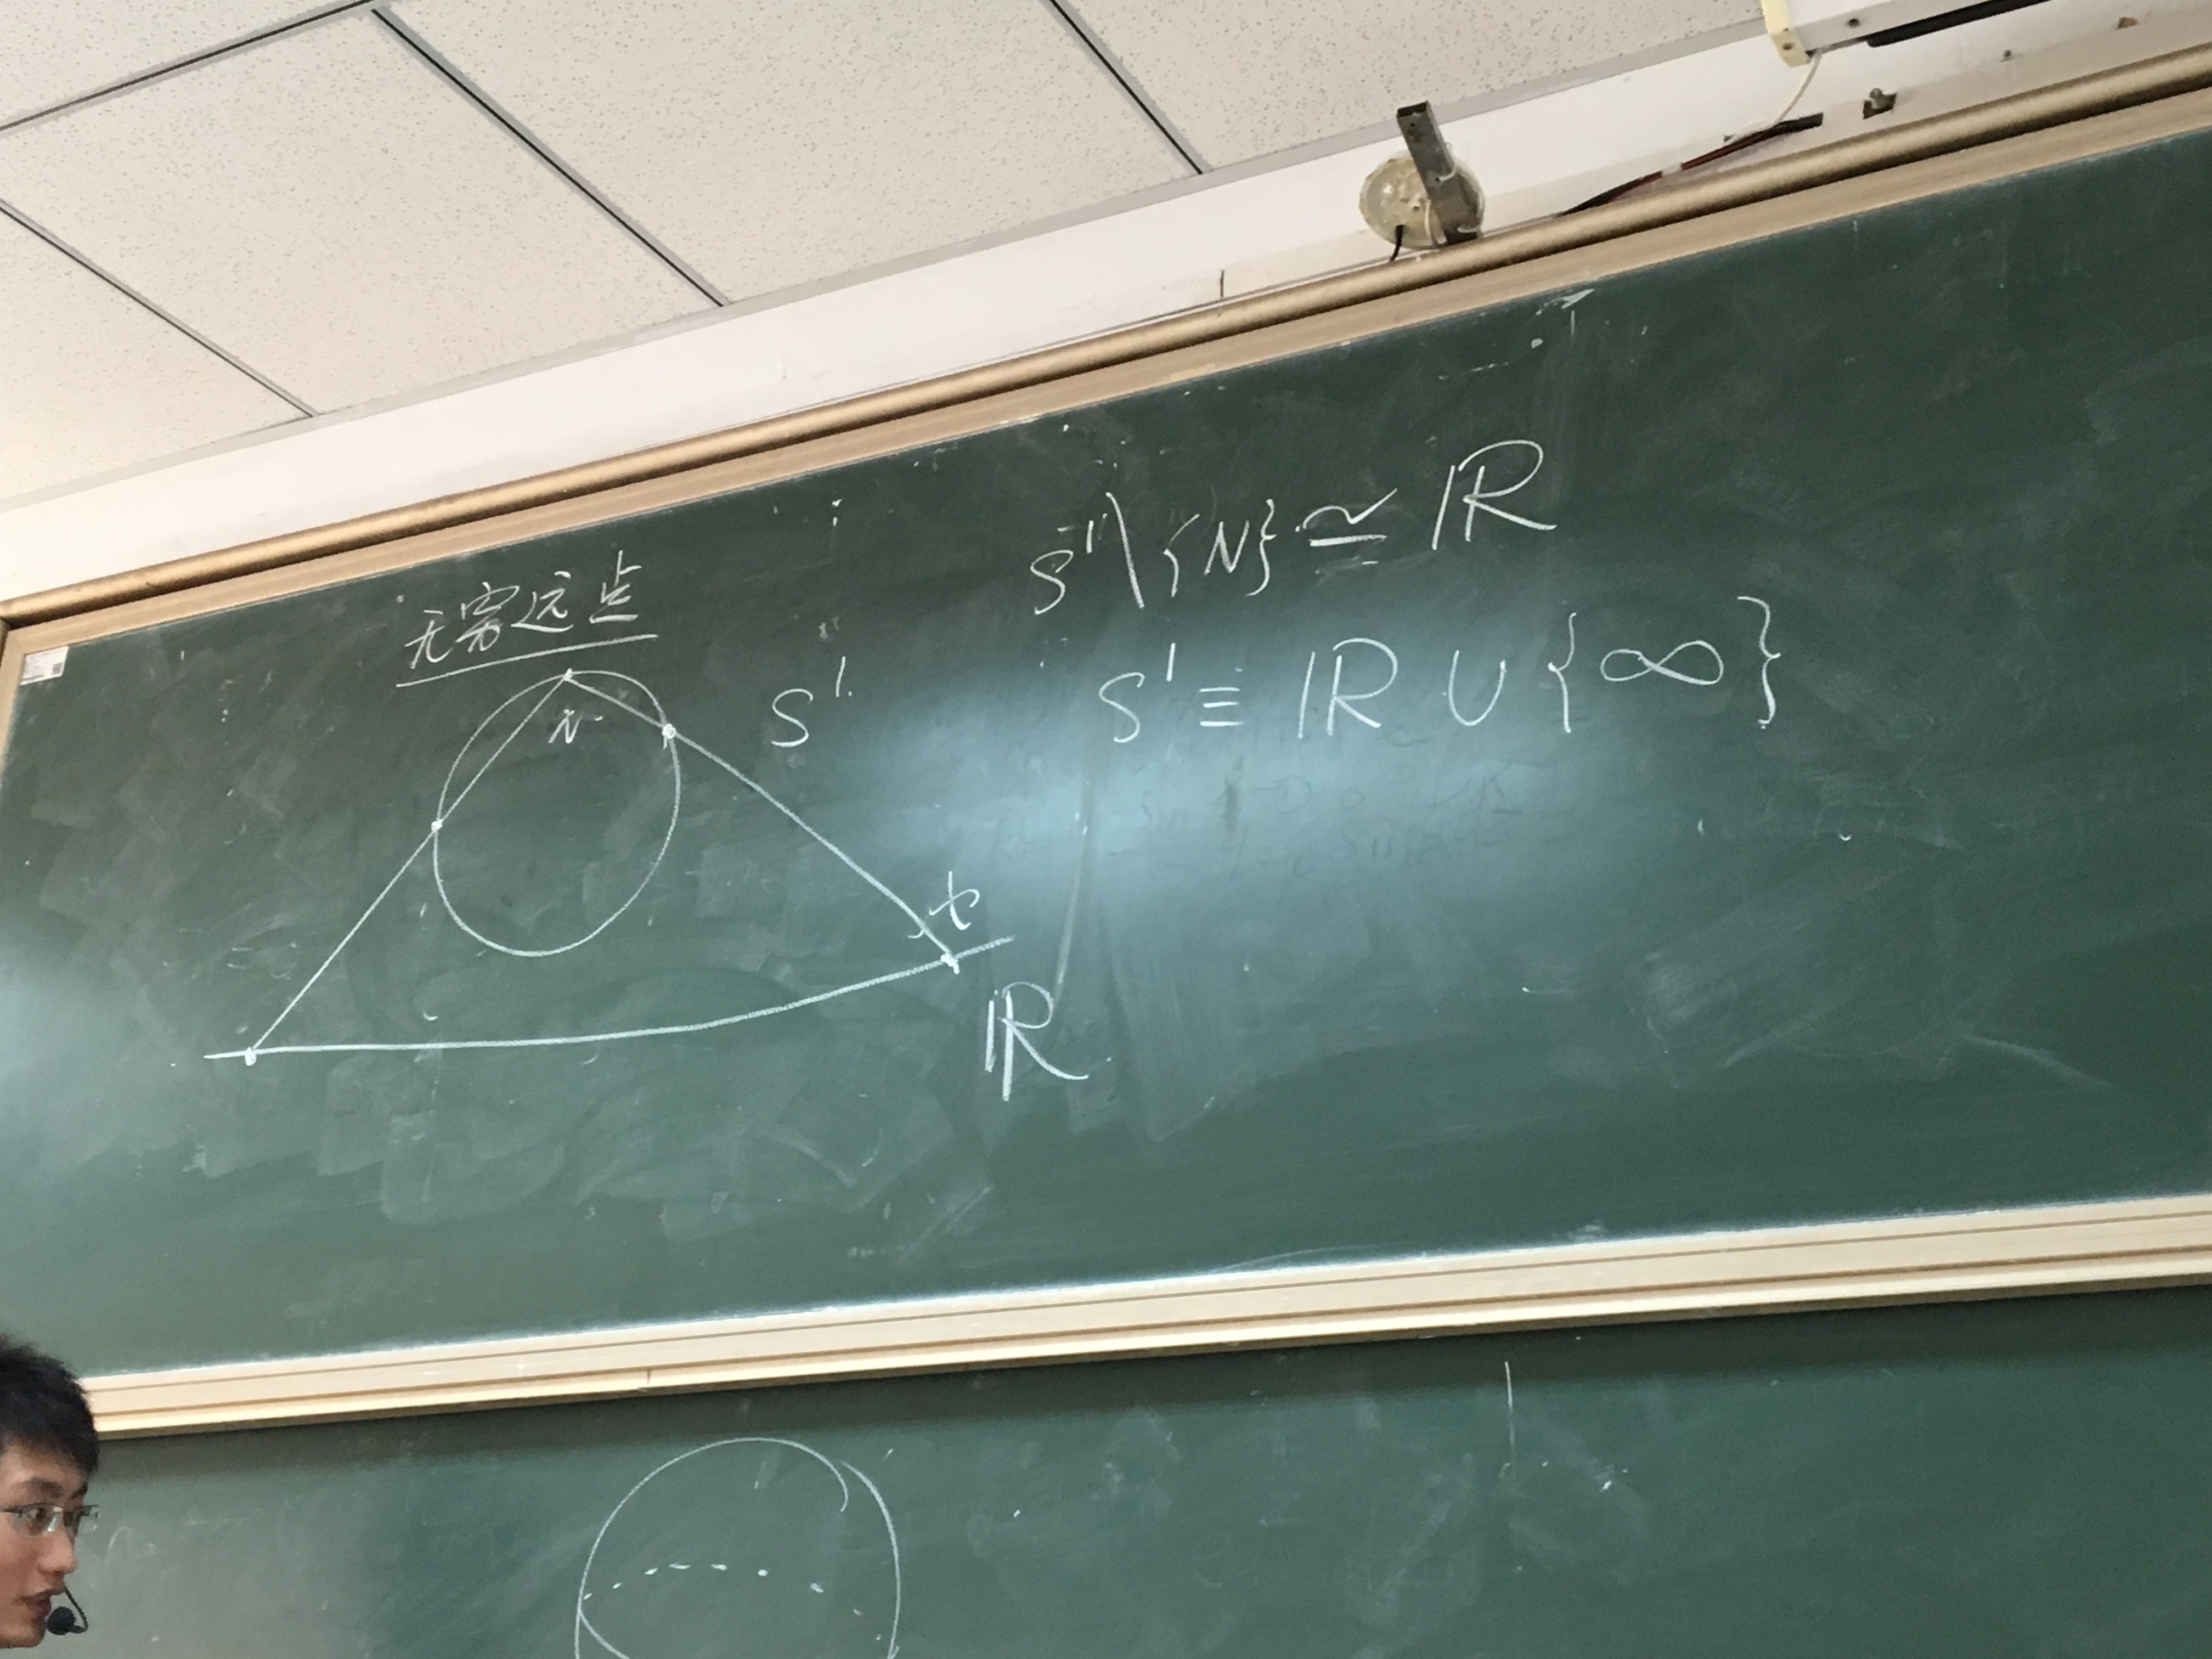 无穷远点
N
S¹
t
ℝ
S¹\{N} ≃ ℝ
S¹ ≡ ℝ ∪ {∞}